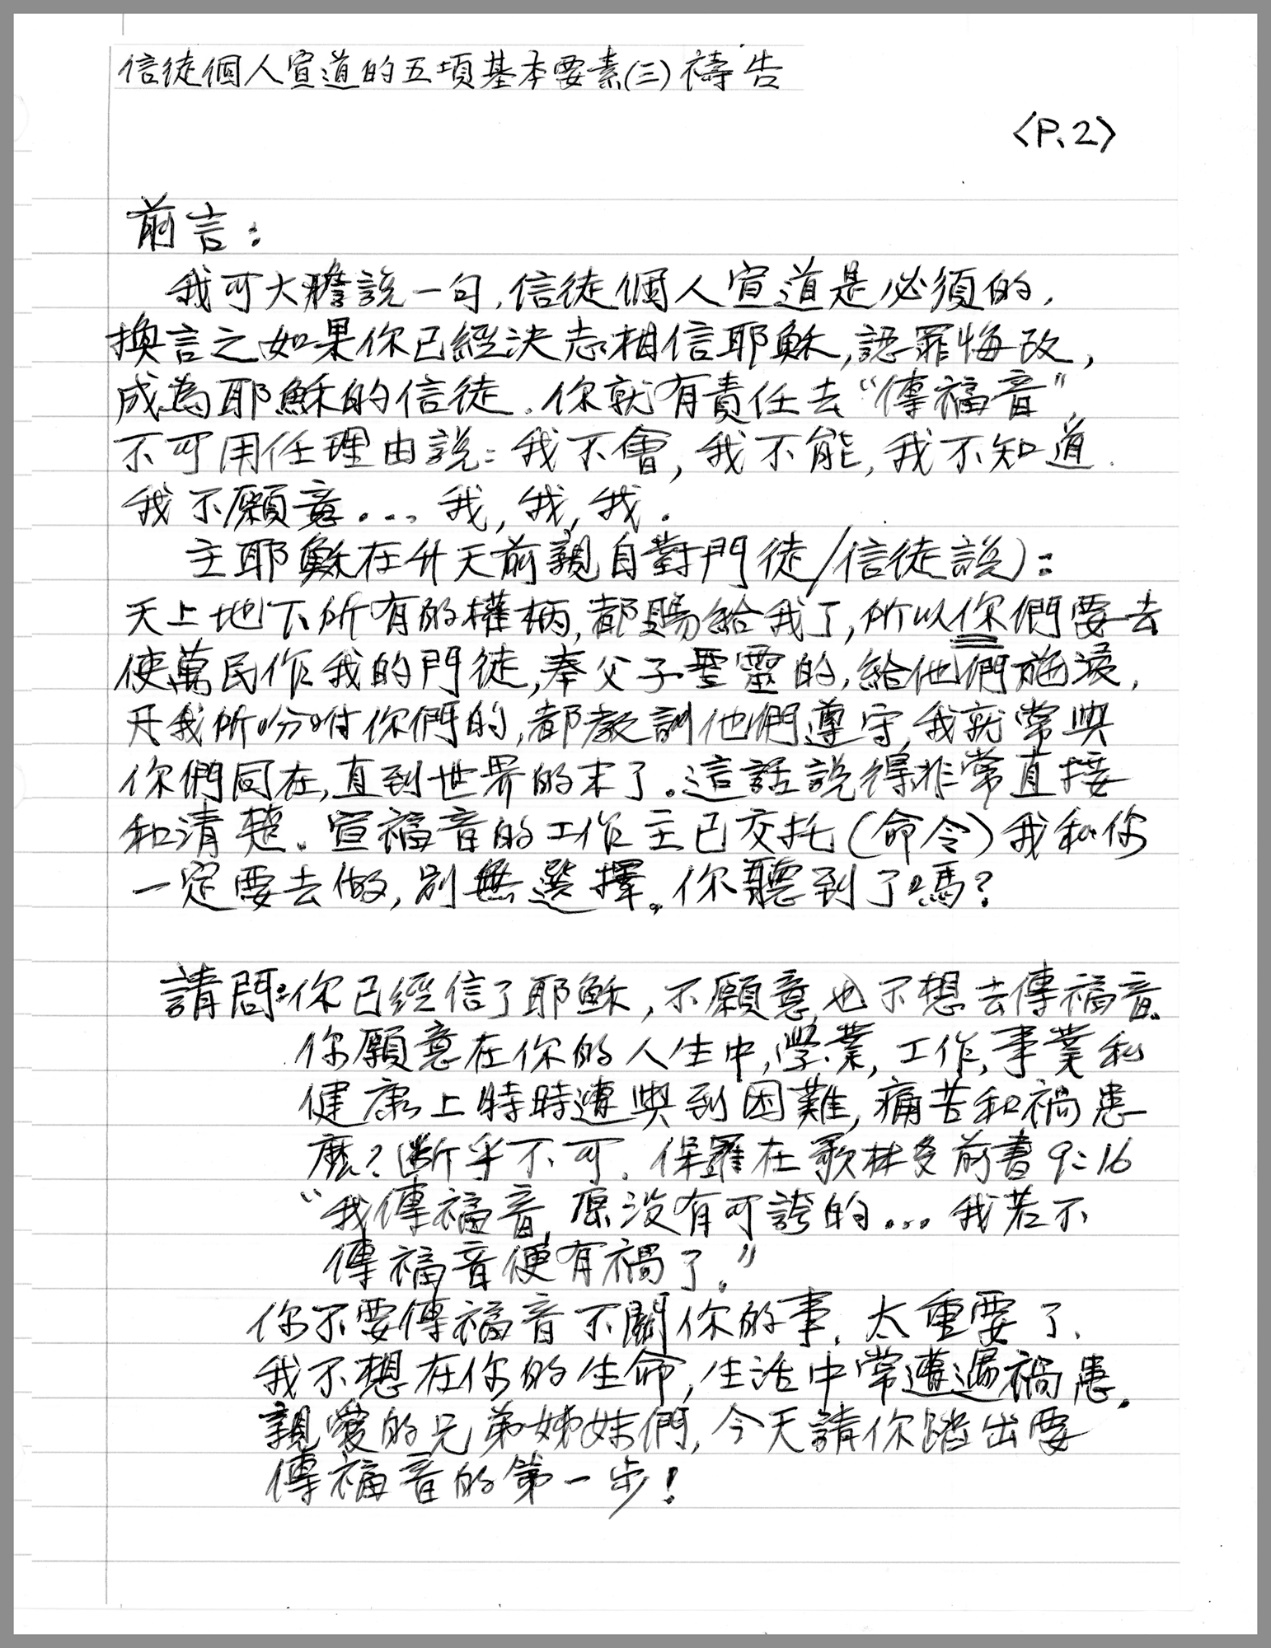 信徒個人宣道的五項基本要素(三)禱告
<P.2>
前言:
我可大膽說一句,信徒個人宣道是必須的,
換言之如果你已經決志相信耶穌,認罪悔改,
成為耶穌的信徒.你就有責任去“傳福音”,
不可用任理由說:我不會,我不能,我不知道.
我不願意...我,我,我.
主耶穌在升天前親自對門徒/信徒說):
天上地下所有的權柄,都賜給我了,所以你們要去
使萬民作我的門徒,奉父子聖靈的,給他們施浸,
凡我所吩咐你們的,都教訓他們遵守,我就常與
你們同在,直到世界的末了。這話說得非常直接
和清楚。宣福音的工作主已交托(命令)我和你
一定要去做,別無選擇。你聽到了嗎?
請問:你已經信了耶穌,不願意,也不想去傳福音。
你願意在你的人生中,學業,工作,事業和
健康上時時遭與到困難,痛苦和禍患
麼?斷乎不可.保羅在歌林多前書9:16
“我傳福音,原沒有可誇的...我若不
傳福音便有禍了。”
你不要傳福音不關你的事.太重要了.
我不想在你的生命,生活中常遭遇禍患。
親愛的兄弟姊妹們,今天請你踏出要
傳福音的第一步!